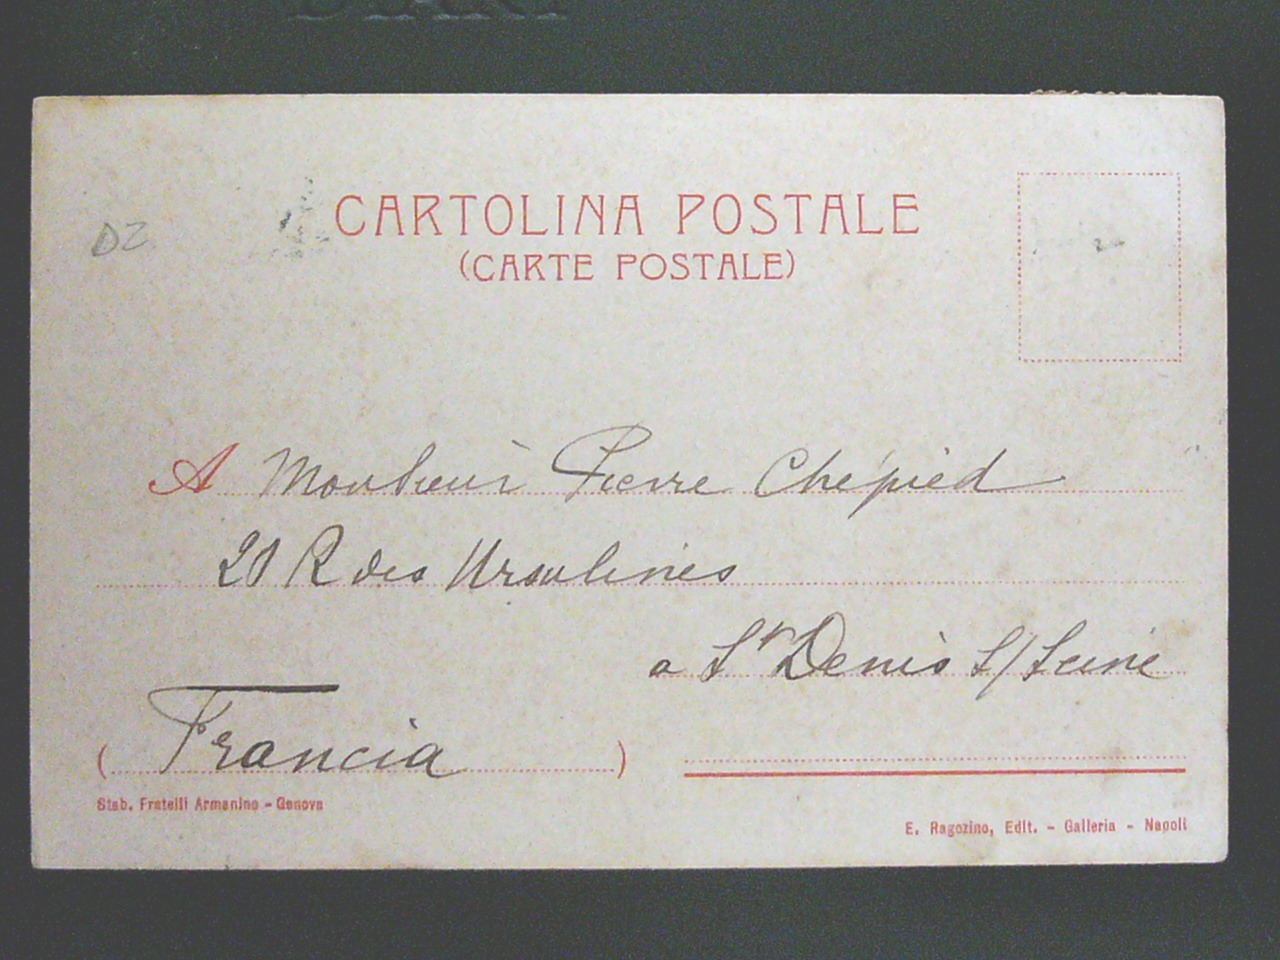 DIARY
DZ
CARTOLINA POSTALE
(CARTE POSTALE)
A Monsieur Pierre Chépied
20 R des Ursulines
a St Denis S/Seine
(Francia)
Stab. Fratelli Armanino - Genova
E. Ragozino, Edit. - Galleria - Napoli